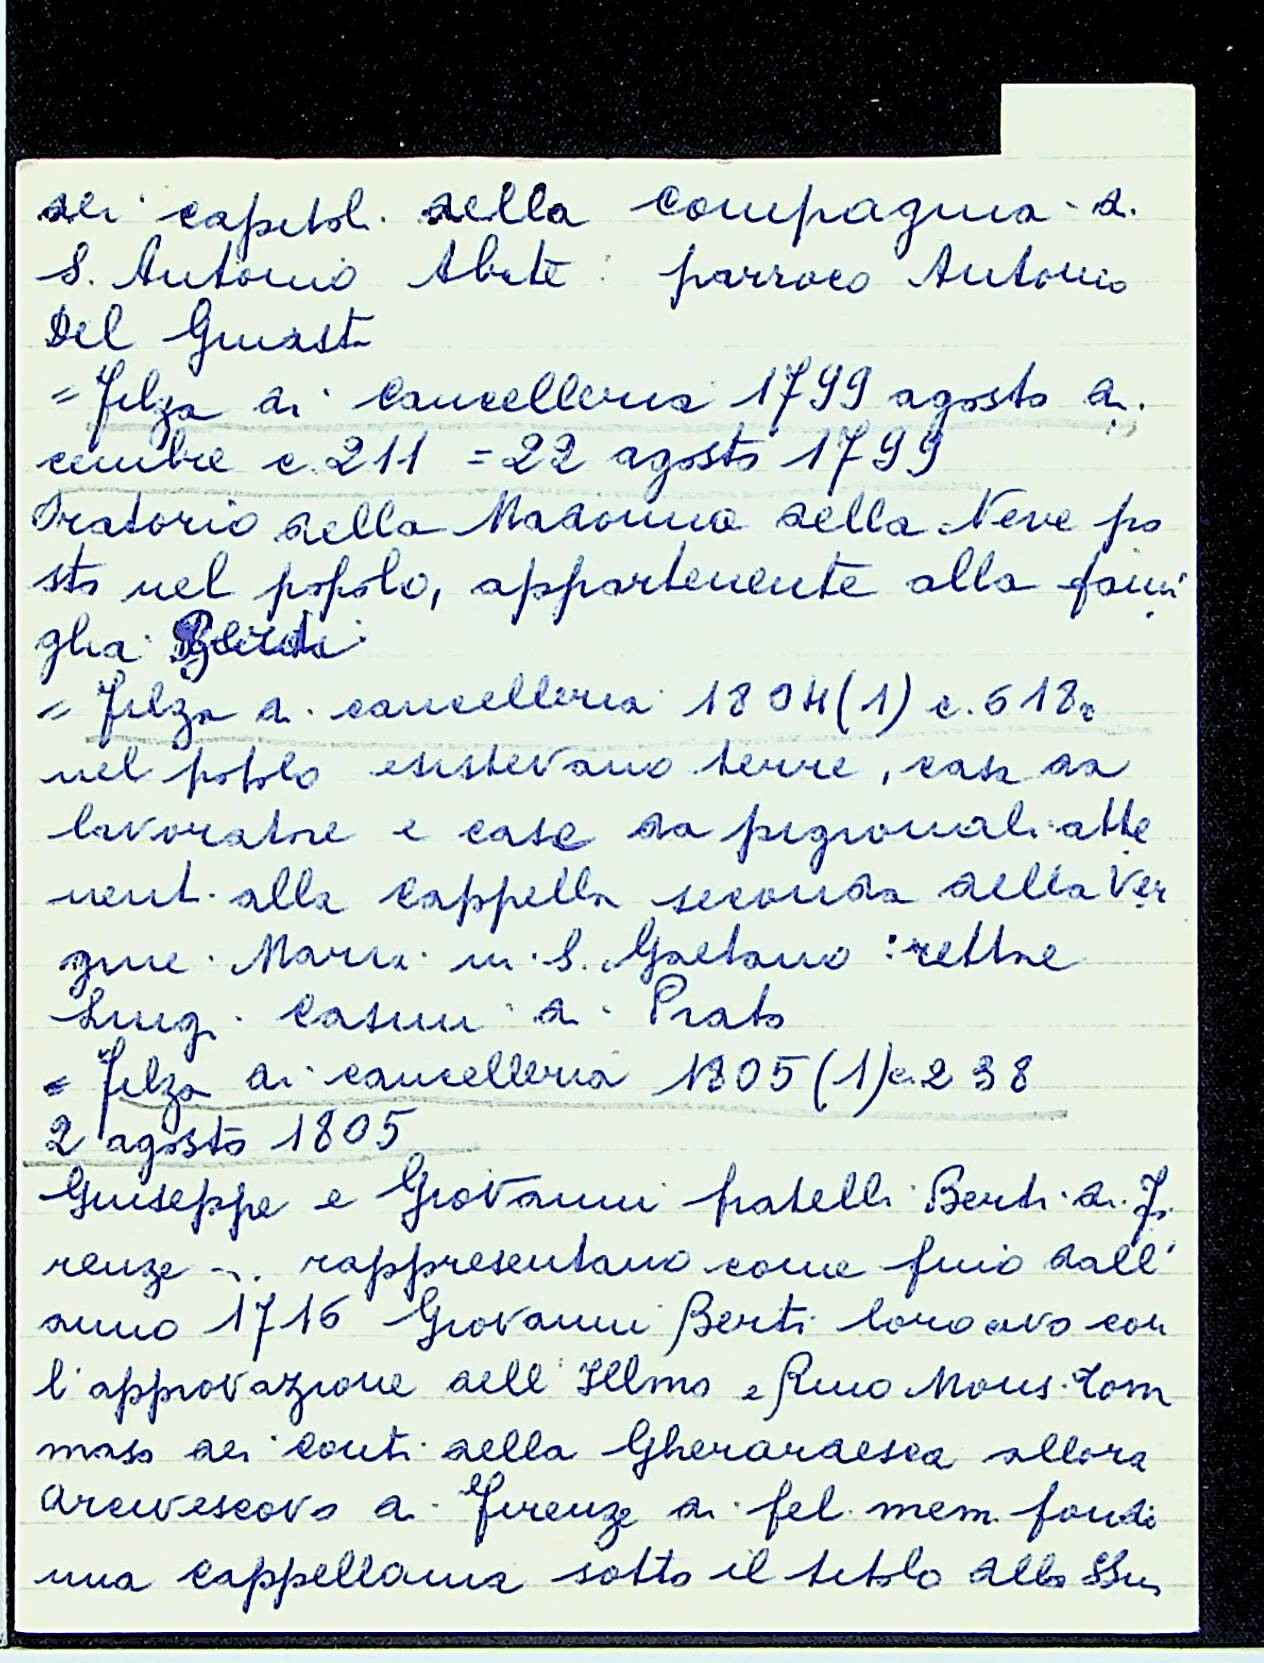 dei capitoli della compagnia di
S. Antonio Abate: parroco Antonio
Del Guasta
= Filza di cancelleria 1799 agosto di
cembre c. 211 = 22 agosto 1799
Oratorio della Madonna della Neve po
sto nel popolo, appartenente alla fami
glia
= Filza di cancelleria 1804 (1) c. 618
nel popolo esistevano terre, case da
lavoratore e case da pigionali atte
nenti alla cappella seconda della Ver
gine Maria in S. Gaetano: rettore
Luigi Casini di Prato
= Filza di cancelleria 1805 (1) c. 238
2 agosto 1805
Giuseppe e Giovanni fratelli Berti di Fi
renze ... rappresentano come fino dall'
anno 1716 Giovanni Berti loro avo con
l'approvazione dell'Illmo e Rmo Mons. Tom
maso dei conti della Gherardesca allora
arcivescovo di Firenze di fel. mem. fondò
una cappellania sotto il titolo dello